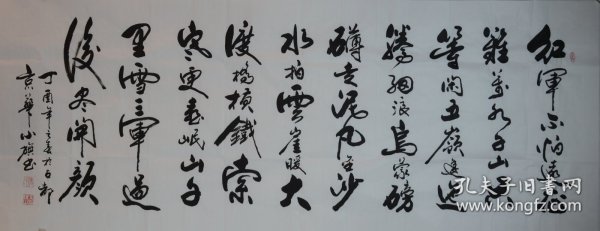 紅軍不怕遠征
難萬水千山只
等閑五嶺逶迤
騰細浪烏蒙磅
礴走泥丸金沙
水拍雲崖暖大
渡橋橫鐵索
寒更喜岷山千
里雪三軍過
後尽開顏
丁酉年之夏於古都
京華
孔夫子旧书网
www.kongfz.com